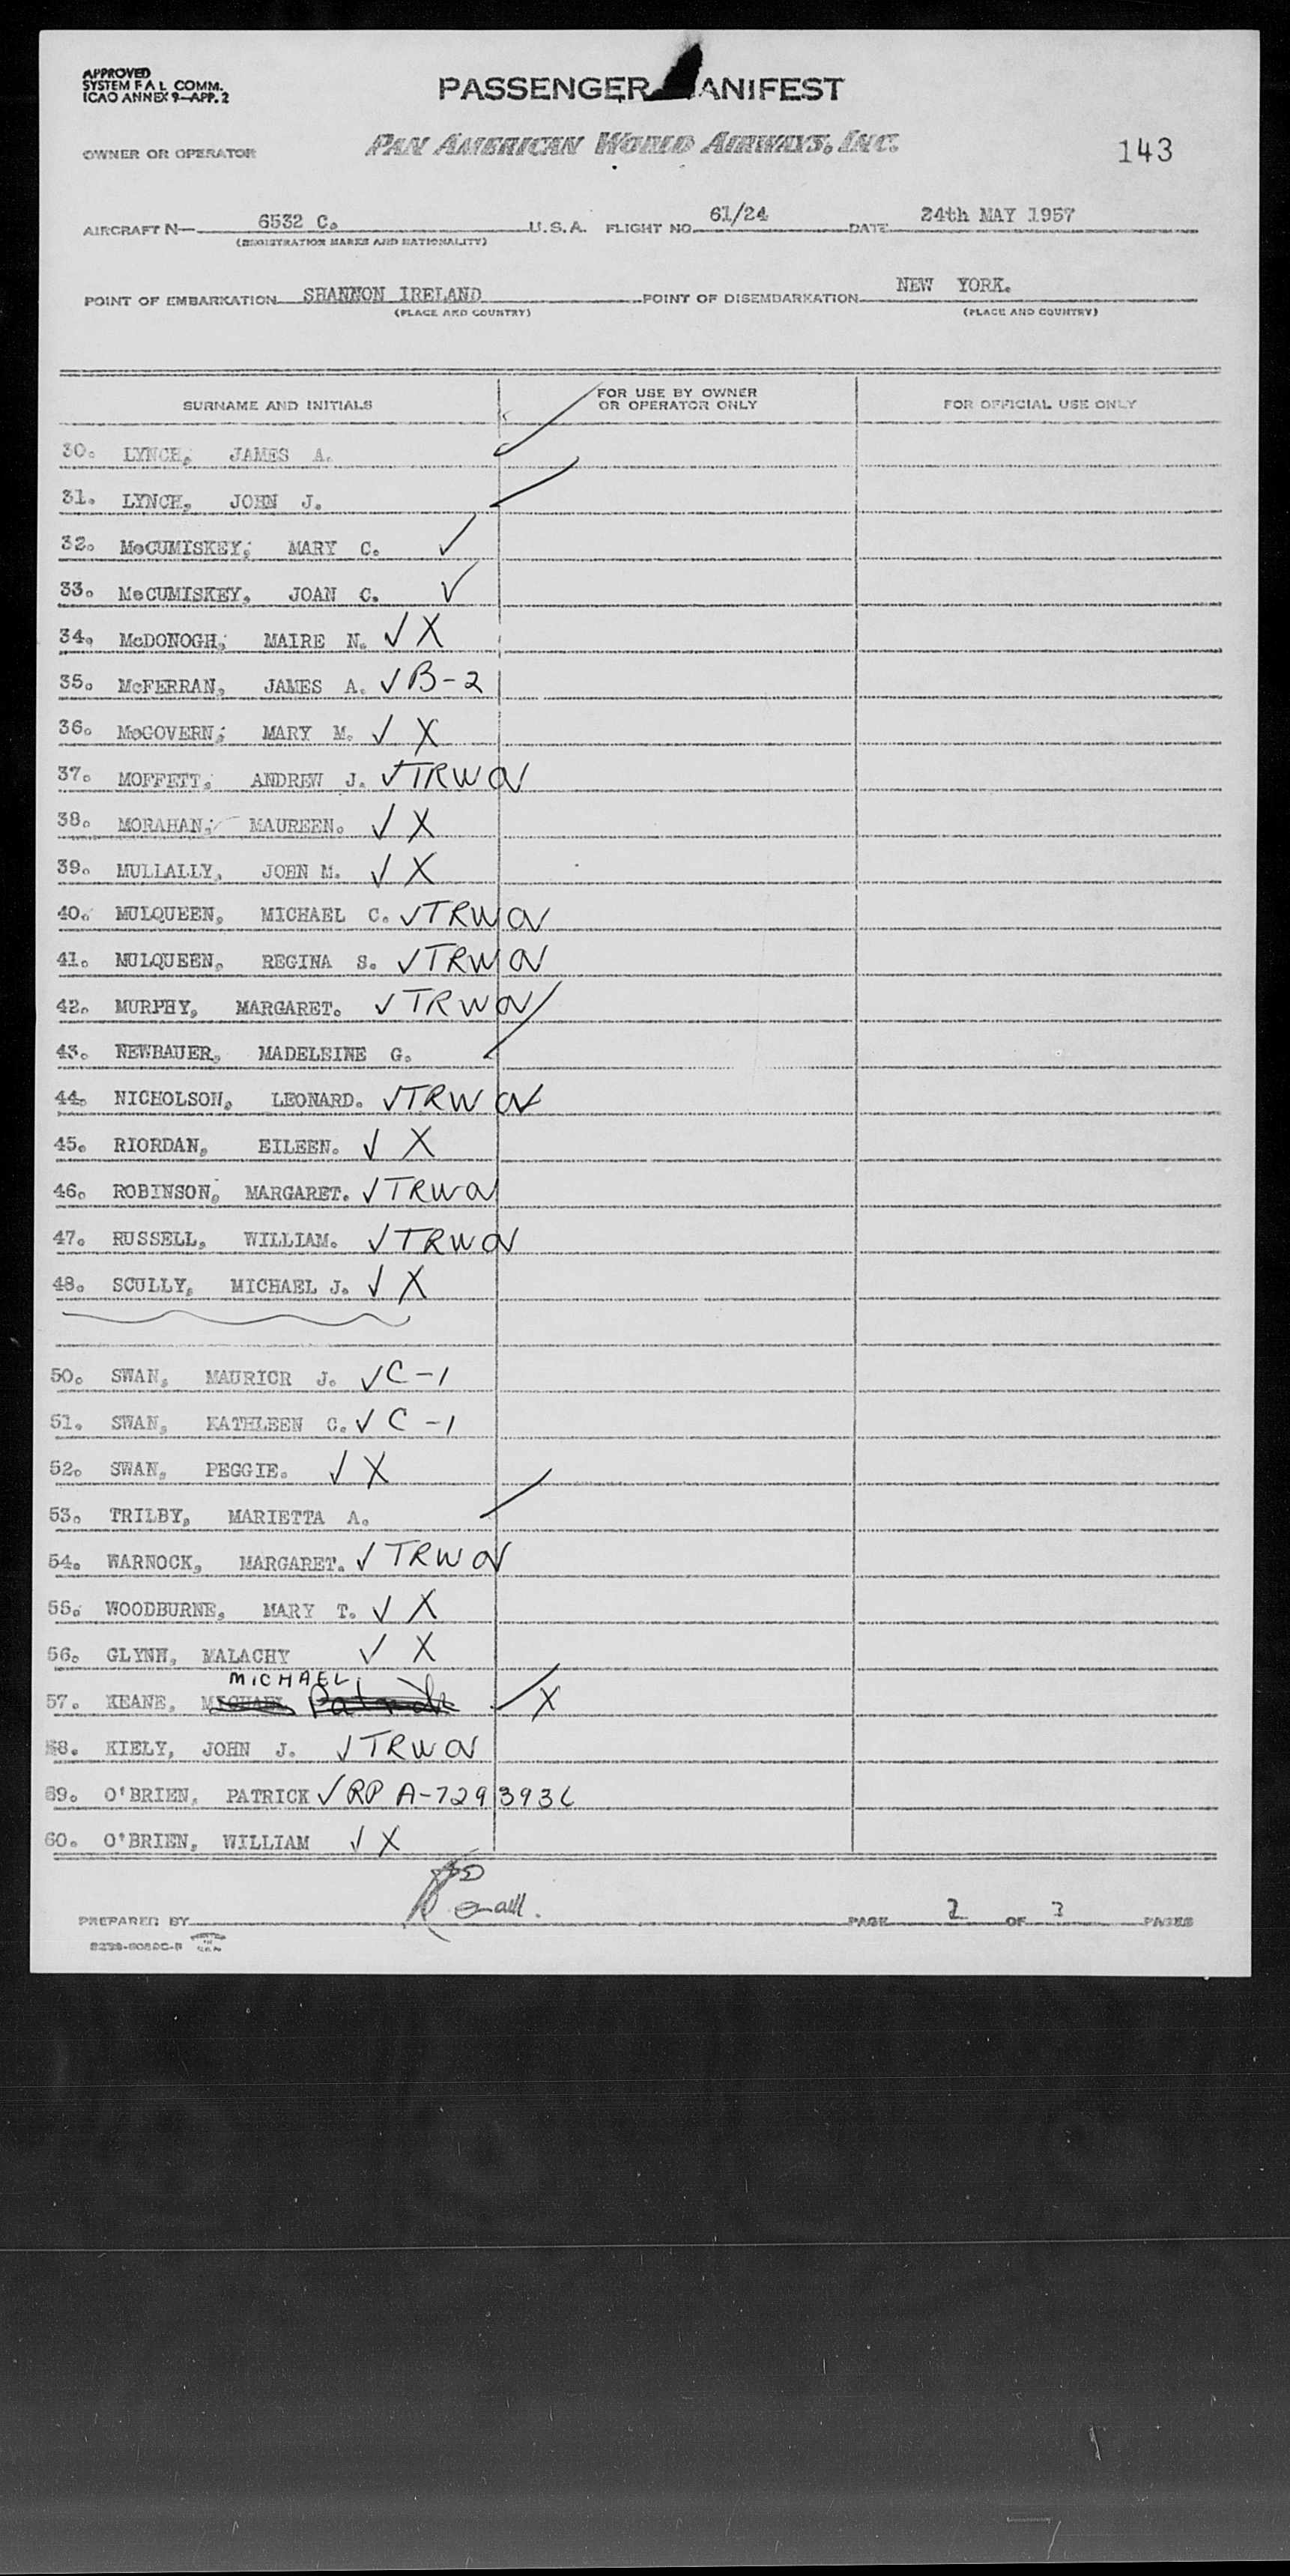 APPROVED
SYSTEM F A L COMM.
ICAO ANNEX 9—APP. 2
PASSENGER ANIFEST
OWNER OR OPERATOR
PAN AMERICAN WORLD AIRWAYS, INC.
143
AIRCRAFT N— 6532 C. U.S.A. FLIGHT NO. 61/24 DATE 24th MAY 1957
(REGISTRATION MARKS AND NATIONALITY)
POINT OF EMBARKATION SHANNON IRELAND POINT OF DISEMBARKATION NEW YORK.
(PLACE AND COUNTRY) (PLACE AND COUNTRY)
SURNAME AND INITIALS FOR USE BY OWNER OR OPERATOR ONLY FOR OFFICIAL USE ONLY
30. LYNCH, JAMES A. ✓
31. LYNCH, JOHN J. ✓
32. McCUMISKEY, MARY C. ✓
33. McCUMISKEY, JOAN C. ✓
34. McDONOGH, MAIRE N. ✓ X
35. McFERRAN, JAMES A. ✓ B-2
36. McGOVERN, MARY M. ✓ X
37. MOFFETT, ANDREW J. ✓ TRWOV
38. MORAHAN, MAUREEN. ✓ X
39. MULLALLY, JOHN M. ✓ X
40. MULQUEEN, MICHAEL C. ✓ TRWOV
41. MULQUEEN, REGINA S. ✓ TRWOV
42. MURPHY, MARGARET. ✓ TRWOV
43. NEWBAUER, MADELEINE G. ✓
44. NICHOLSON, LEONARD. ✓ TRWOV
45. RIORDAN, EILEEN. ✓ X
46. ROBINSON, MARGARET. ✓ TRWOV
47. RUSSELL, WILLIAM. ✓ TRWOV
48. SCULLY, MICHAEL J. ✓ X
50. SWAN, MAURICR J. ✓ C-1
51. SWAN, KATHLEEN C. ✓ C-1
52. SWAN, PEGGIE. ✓ X
53. TRILBY, MARIETTA A. ✓
54. WARNOCK, MARGARET. ✓ TRWOV
55. WOODBURNE, MARY T. ✓ X
56. GLYNN, MALACHY ✓ X
MICHAEL
57. KEANE, MICHAEL Patrick ✓ X
58. KIELY, JOHN J. ✓ TRWOV
59. O'BRIEN, PATRICK ✓ RP A-7293936
60. O'BRIEN, WILLIAM ✓ X
PREPARED BY PAGE 2 OF 3 PAGES